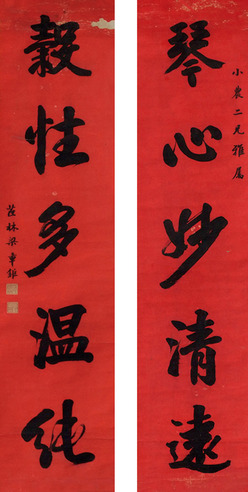 小農二兄雅属
琴心妙清遠
穀性多温純
茝林梁章鉅